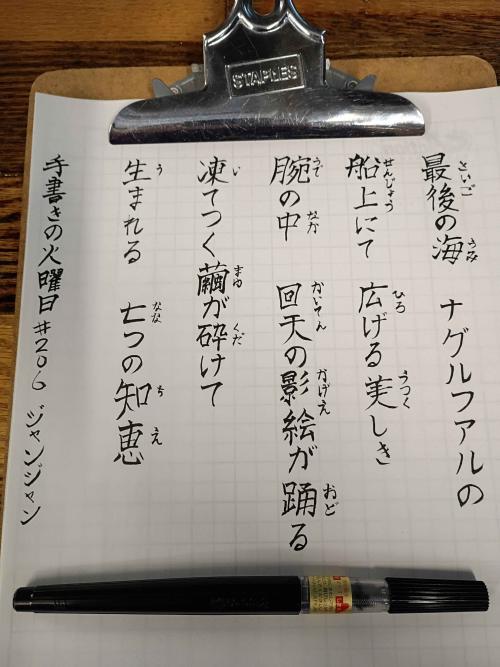 STAPLES
最後の海 ナグルファルの
さいご うみ
船上にて 広げる美しき
せんじょう ひろ うつく
腕の中 回天の影絵が踊る
うで なか かいてん かげえ おど
凍てつく繭が砕けて
い まゆ くだ
生まれる 七つの知恵
う なな ちえ
手書きの火曜日#206 ジャンジャン